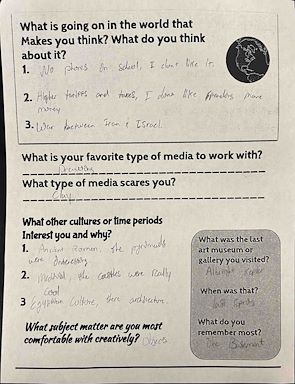 What is going on in the world that
Makes you think? What do you think
about it?
1. No phones in school, I dont like it.
2. Higher tariffs and taxes, I dont like spending more
money
3. War between Iran & Israel.
What is your favorite type of media to work with?
Drawing
What type of media scares you?
Clay
What other cultures or time periods
Interest you and why?
1. Ancient Roman, the
were interesting
2. Medieval, the castles were really
cool
3 Egyptian Culture, there architecture.
What subject matter are you most
comfortable with creatively? Objects
What was the last
art museum or
gallery you visited?
When was that?
last Spring
What do you
remember most?
The Basement